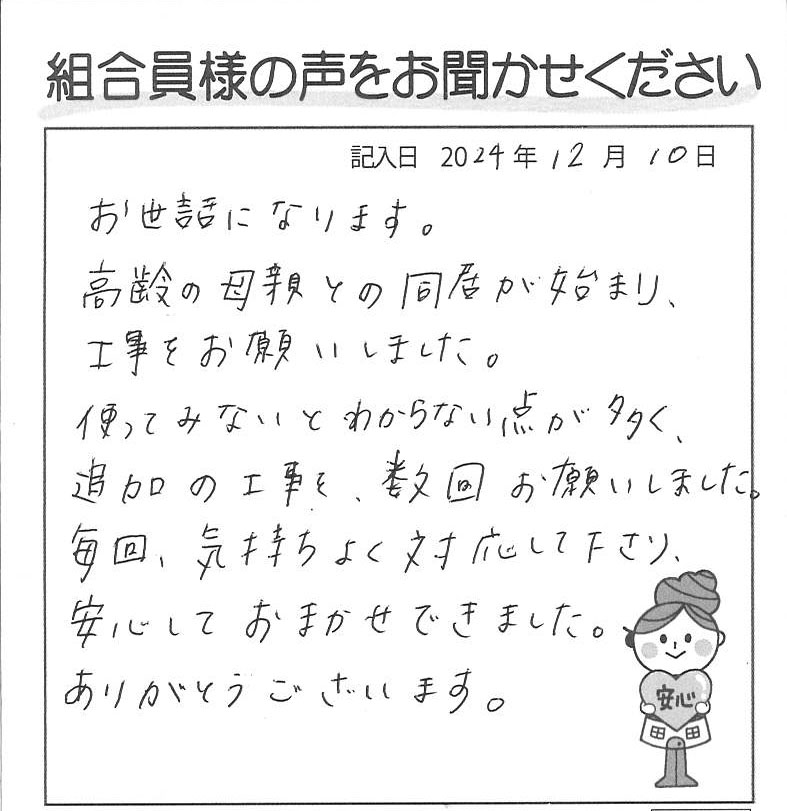 組合員様の声をお聞かせください
記入日 2024年12月10日
お世話になります。
高齢の母親との同居が始まり、
工事をお願いしました。
使ってみないとわからない点が多く、
追加の工事を、数回お願いしました。
毎回、気持ちよく対応して下さり、
安心しておまかせできました。
ありがとうございます。
安心